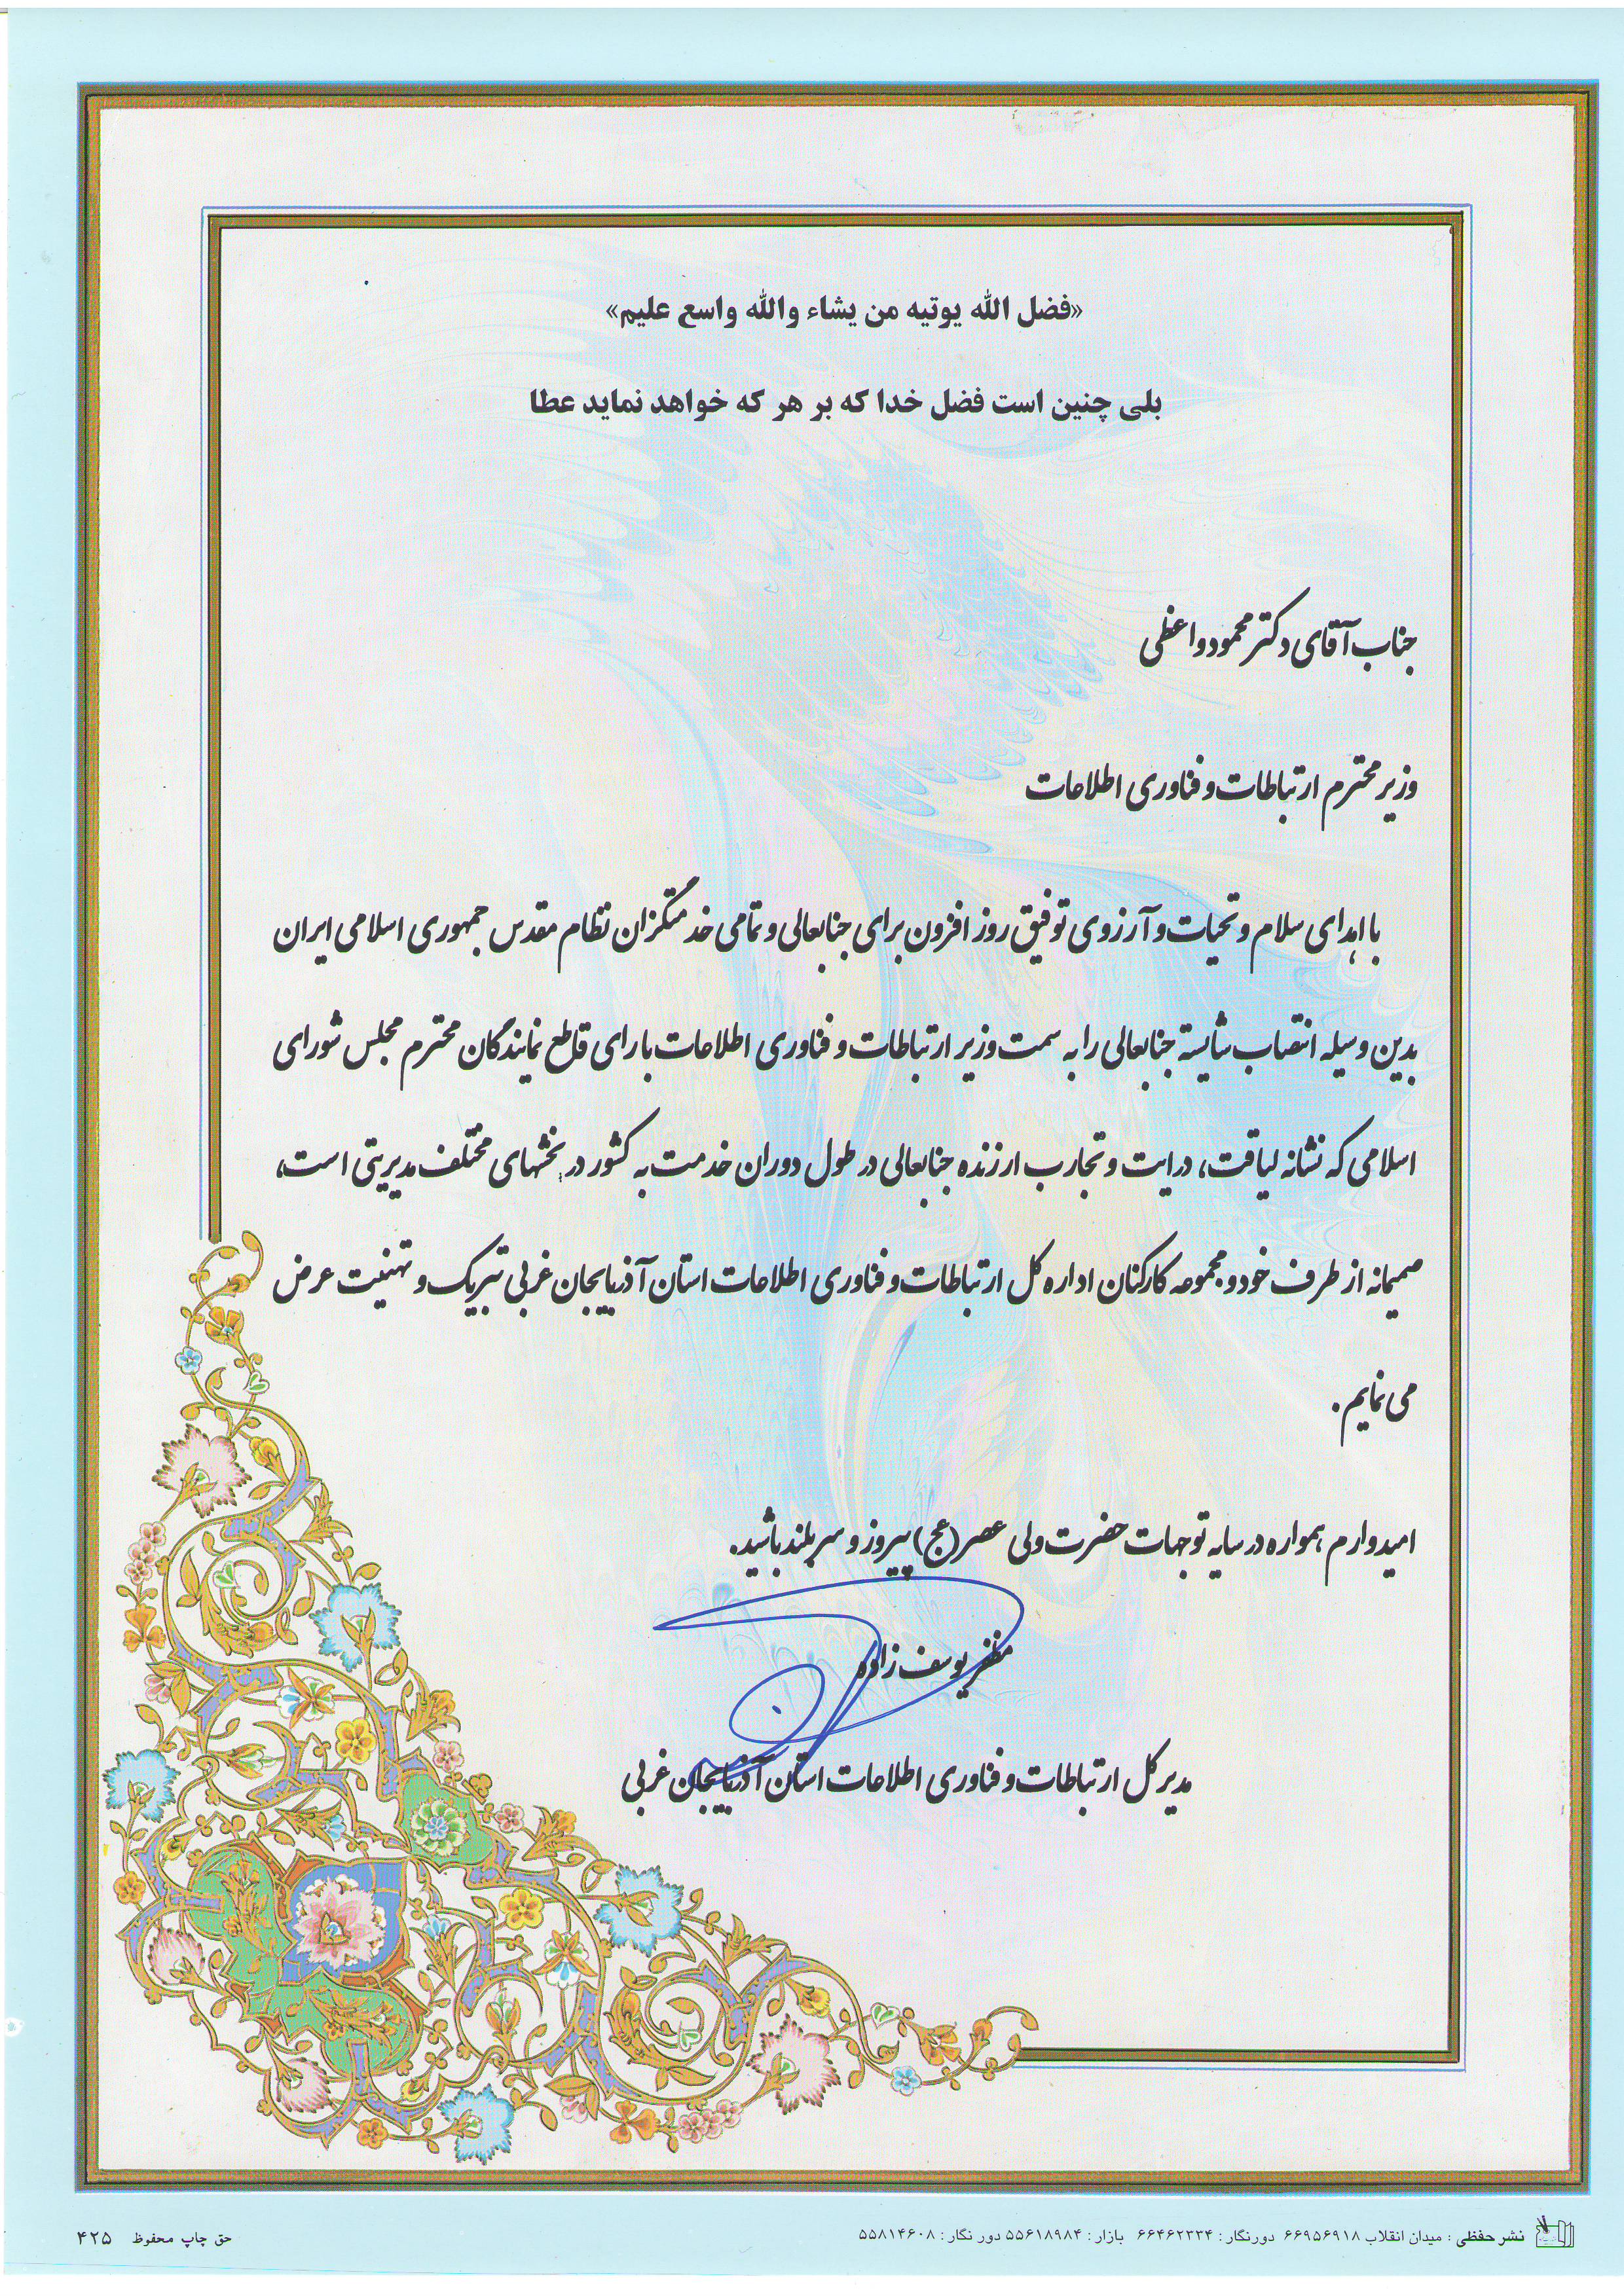 «فضل الله یوتیه من یشاء والله واسع علیم»
بلی چنین است فضل خدا که بر هر که خواهد نماید عطا
جناب آقای دکتر محمود واعظی
وزیر محترم ارتباطات و فناوری اطلاعات
با اهدای سلام و تحیات و آرزوی توفیق روز افزون برای جنابعالی و تمامی خدمتگزران نظام مقدس جمهوری اسلامی ایران
بدین وسیله انتصاب شایسته جنابعالی را به سمت وزیر ارتباطات و فناوری اطلاعات با رای قاطع نمایندگان محترم مجلس شورای
اسلامی که نشانه لیاقت، درایت و تجارب ارزنده جنابعالی در طول دوران خدمت به کشور در بخشهای مختلف مدیریتی است،
صمیمانه از طرف خود و مجموعه کارکنان اداره کل ارتباطات و فناوری اطلاعات استان آذربایجان غربی تبریک و تهنیت عرض
می نمایم.
امیدوارم همواره در سایه توجهات حضرت ولی عصر (عج) پیروز و سربلند باشید.
مظفر یوسف زاده
مدیر کل ارتباطات و فناوری اطلاعات استان آذربایجان غربی
نشر حفظی : میدان انقلاب ۶۶۹۵۶۹۱۸ دورنگار : ۶۶۴۶۲۳۳۴ بازار : ۵۵۶۱۸۹۸۴ دور نگار : ۵۵۸۱۴۶۰۸
حق چاپ محفوظ ۴۲۵